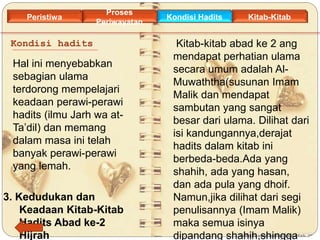 Peristiwa
Proses
Periwayatan
Kondisi Hadits
Kitab-Kitab
Kondisi hadits
Hal ini menyebabkan
sebagian ulama
terdorong mempelajari
keadaan perawi-perawi
hadits (ilmu Jarh wa at-
Ta’dil) dan memang
dalam masa ini telah
banyak perawi-perawi
yang lemah.
3. Kedudukan dan
Keadaan Kitab-Kitab
Hadits Abad ke-2
Hijrah
Kitab-kitab abad ke 2 ang
mendapat perhatian ulama
secara umum adalah Al-
Muwaththa(susunan Imam
Malik dan mendapat
sambutan yang sangat
besar dari ulama. Dilihat dari
isi kandungannya,derajat
hadits dalam kitab ini
berbeda-beda.Ada yang
shahih, ada yang hasan,
dan ada pula yang dhoif.
Namun,jika dilihat dari segi
penulisannya (Imam Malik)
maka semua isinya
dipandang shahih,shingga